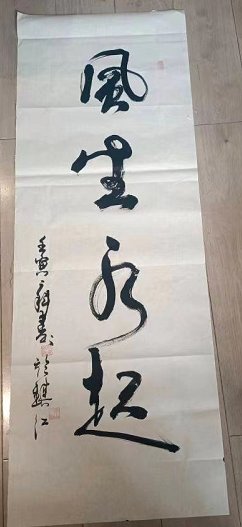 風生水起
壬寅 書 於 江